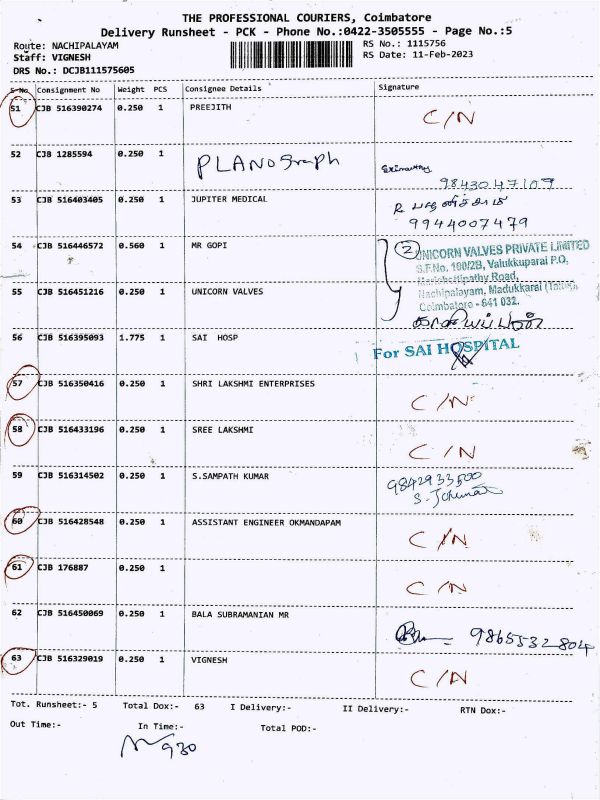 THE PROFESSIONAL COURIERS, Coimbatore
Delivery Runsheet - PCK - Phone No.:0422-3505555 - Page No.:5
Route: NACHIPALAYAM
Staff: VIGNESH
DRS No.: DCJB111575605
RS No.: 1115756
RS Date: 11-Feb-2023
S-No Consignment No Weight PCS Consignee Details Signature
51 CJB 516390274 0.250 1 PREEJITH C/N
52 CJB 1285594 0.250 1 PLANOGraph
9843047109
53 CJB 516403405 0.250 1 JUPITER MEDICAL R. பழனிச்சாமி
9944007479
54 CJB 516446572 0.560 1 MR GOPI 2 UNICORN VALVES PRIVATE LIMITED
S.F.No. 100/2B, Valukkuparai P.O,
Road,
55 CJB 516451216 0.250 1 UNICORN VALVES Nachipalayam, Madukkarai (Taluk),
Coimbatore - 641 032.
காசியப்பன்
56 CJB 516395093 1.775 1 SAI HOSP For SAI HOSPITAL
57 CJB 516350416 0.250 1 SHRI LAKSHMI ENTERPRISES C/N
58 CJB 516433196 0.250 1 SREE LAKSHMI C/N
59 CJB 516314502 0.250 1 S.SAMPATH KUMAR 9842933500
60 CJB 516428548 0.250 1 ASSISTANT ENGINEER OKMANDAPAM C/N
61 CJB 176887 0.250 1 C/N
62 CJB 516450069 0.250 1 BALA SUBRAMANIAN MR 9865532804
63 CJB 516329019 0.250 1 VIGNESH C/N
Tot. Runsheet:- 5 Total Dox:- 63 I Delivery:- II Delivery:- RTN Dox:-
Out Time:- In Time:- Total POD:-
930